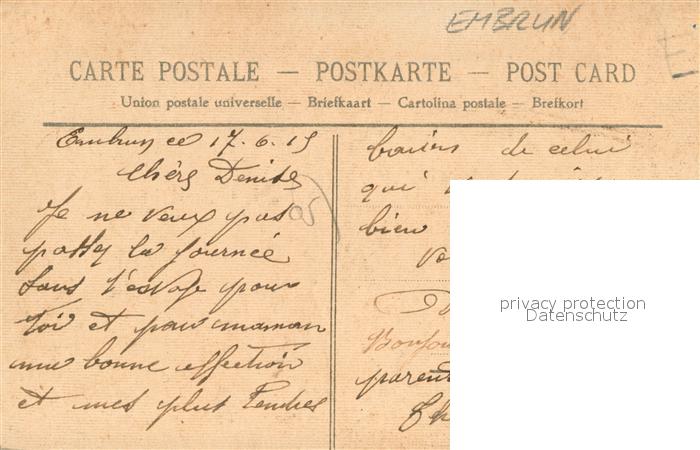 EMBRUN
CARTE POSTALE — POSTKARTE — POST CARD
Union postale universelle — Briefkaart — Cartolina postale — Brefkort
Embrun ce 17.6.15
Chère Denise
Je ne veux pas
passer la journée
sans t'envoyer pour
toi et pour maman
une bonne affection
et mes plus tendres
baisers de celui
qui
bien
Bonjou
parent
privacy protection
Datenschutz